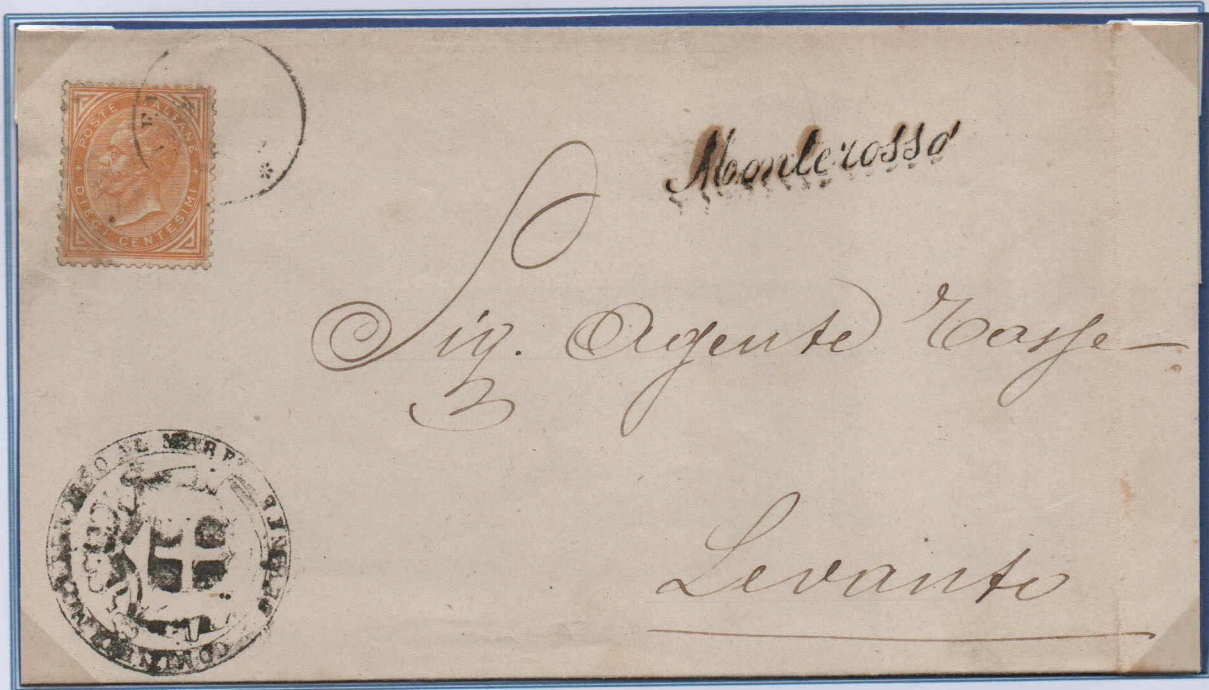 POSTE ITALIANE
DIECI CENTESIMI
Monterosso
Sig. Agente Tasse
Levanto